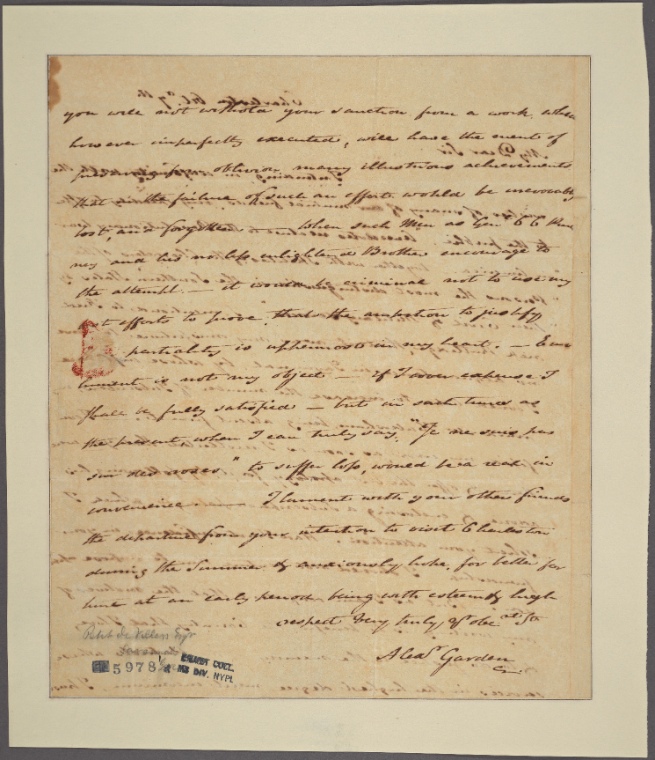 you will not withhold your sanction from a work which
however imperfectly executed, will have the merit of
oblivion many illustrious achievements
that in the failure of such an effort would be irrevocably
lost, and forgotten — When such Men as Genl C C Pinck
ney and his no less enlightened Brother encourage to
the attempt — it would be criminal not to use my
efforts to prove, that the ambition to justify
partiality is uppermost in my heart. — Emo
lument is not my object — If I avoid expense I
shall be fully satisfied — but in such times as
the present, when I can truly say "Je ne suis pas
sur des roses" to suffer loss, would be a real in
convenience I lament with your other friends
the departure from your intention to visit Charleston
during the Summer & anxiously hope, for better for
tune at an early period being with extremely high
respect Very truly yr obed
Alexr Garden
Esqr
5978
EMMET COLL.
MS DIV. NYPL